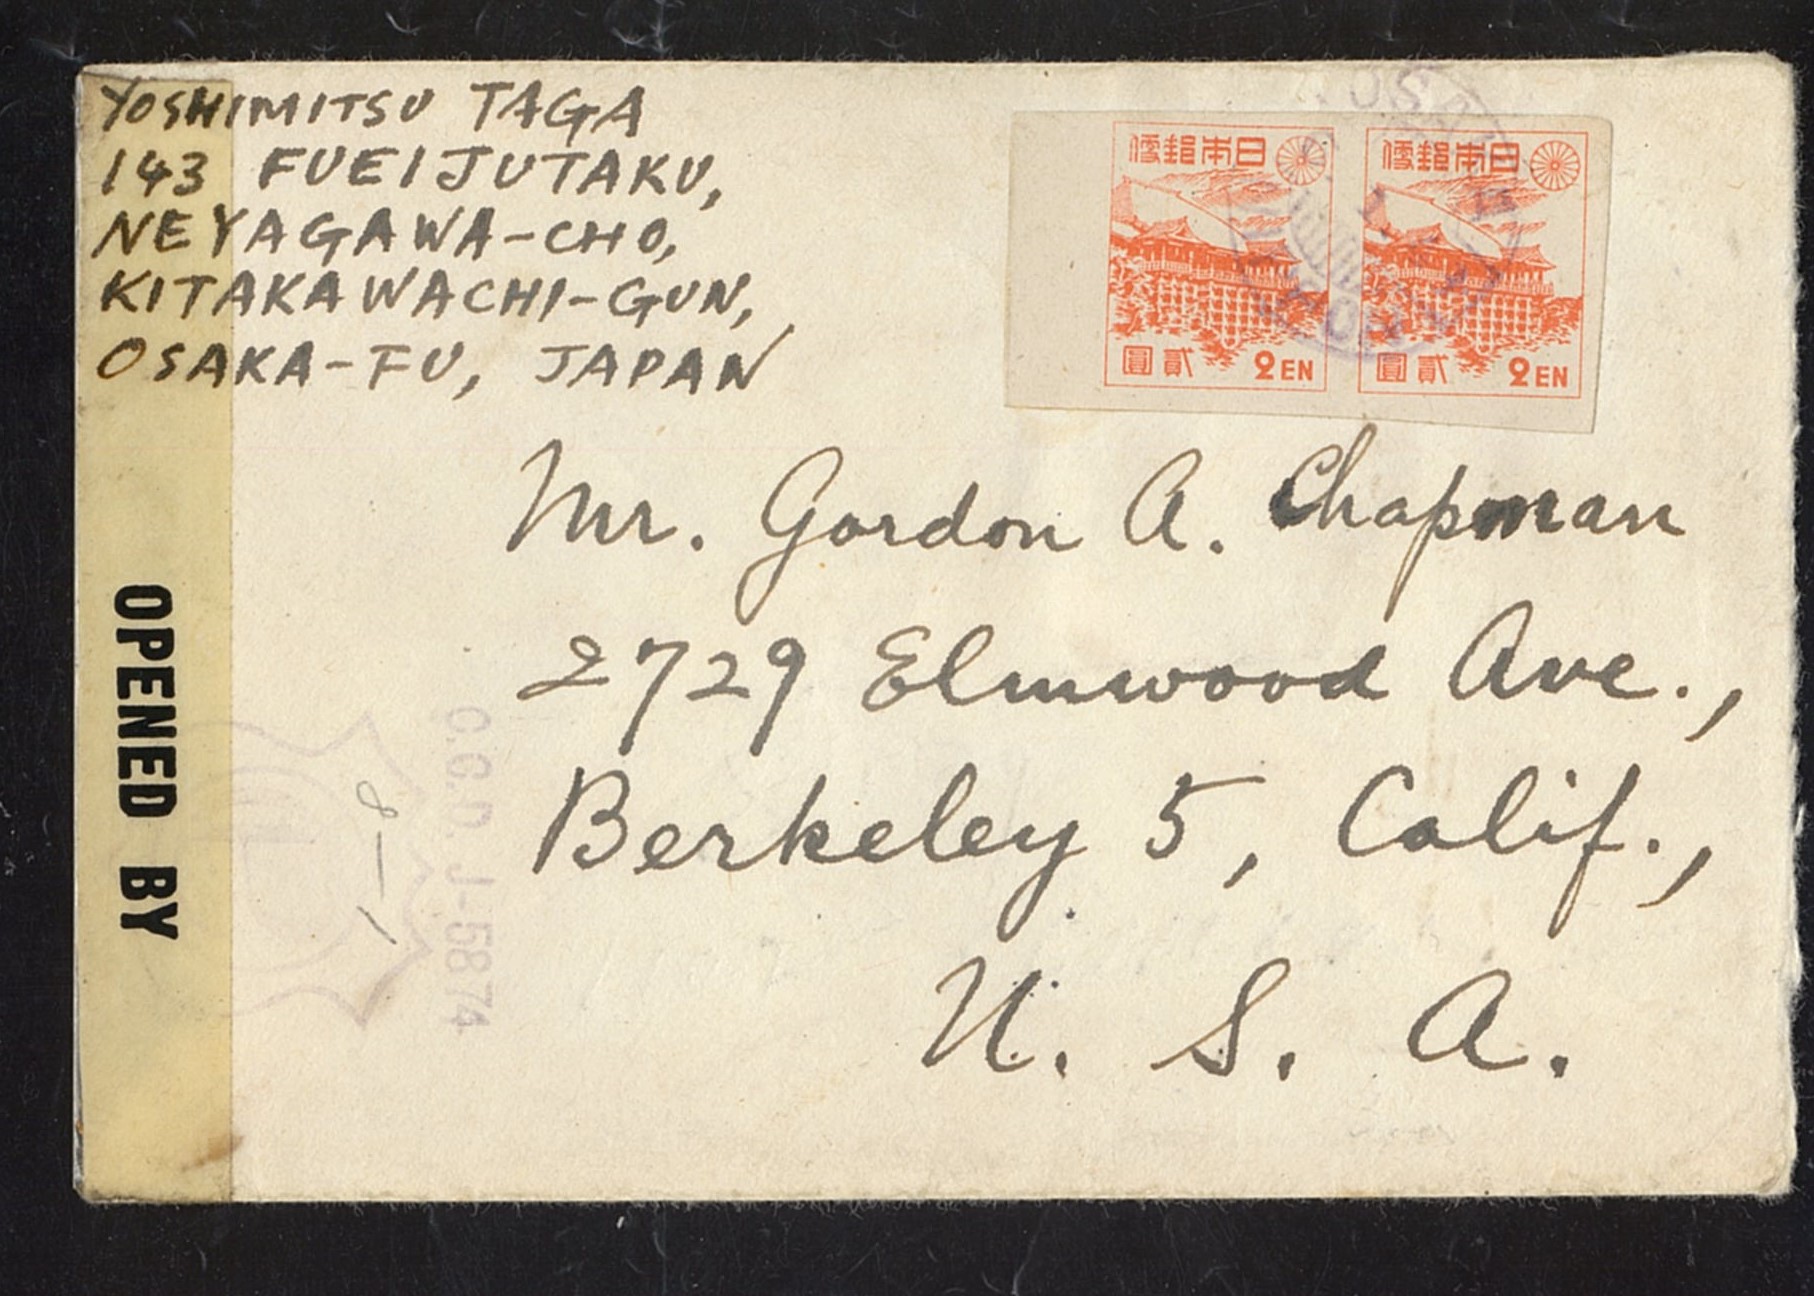 YOSHIMITSU TAGA
143 FUEIJUTAKU,
NEYAGAWA-CHO,
KITAKAWACHI-GUN,
OSAKA-FU, JAPAN
日本郵便
日本郵便
貳圓 2EN
貳圓 2EN
Mr. Gordon A. Chapman
2729 Elmwood Ave.,
Berkeley 5, Calif.,
U. S. A.
OPENED BY
C.C.D. J-5874
8-1